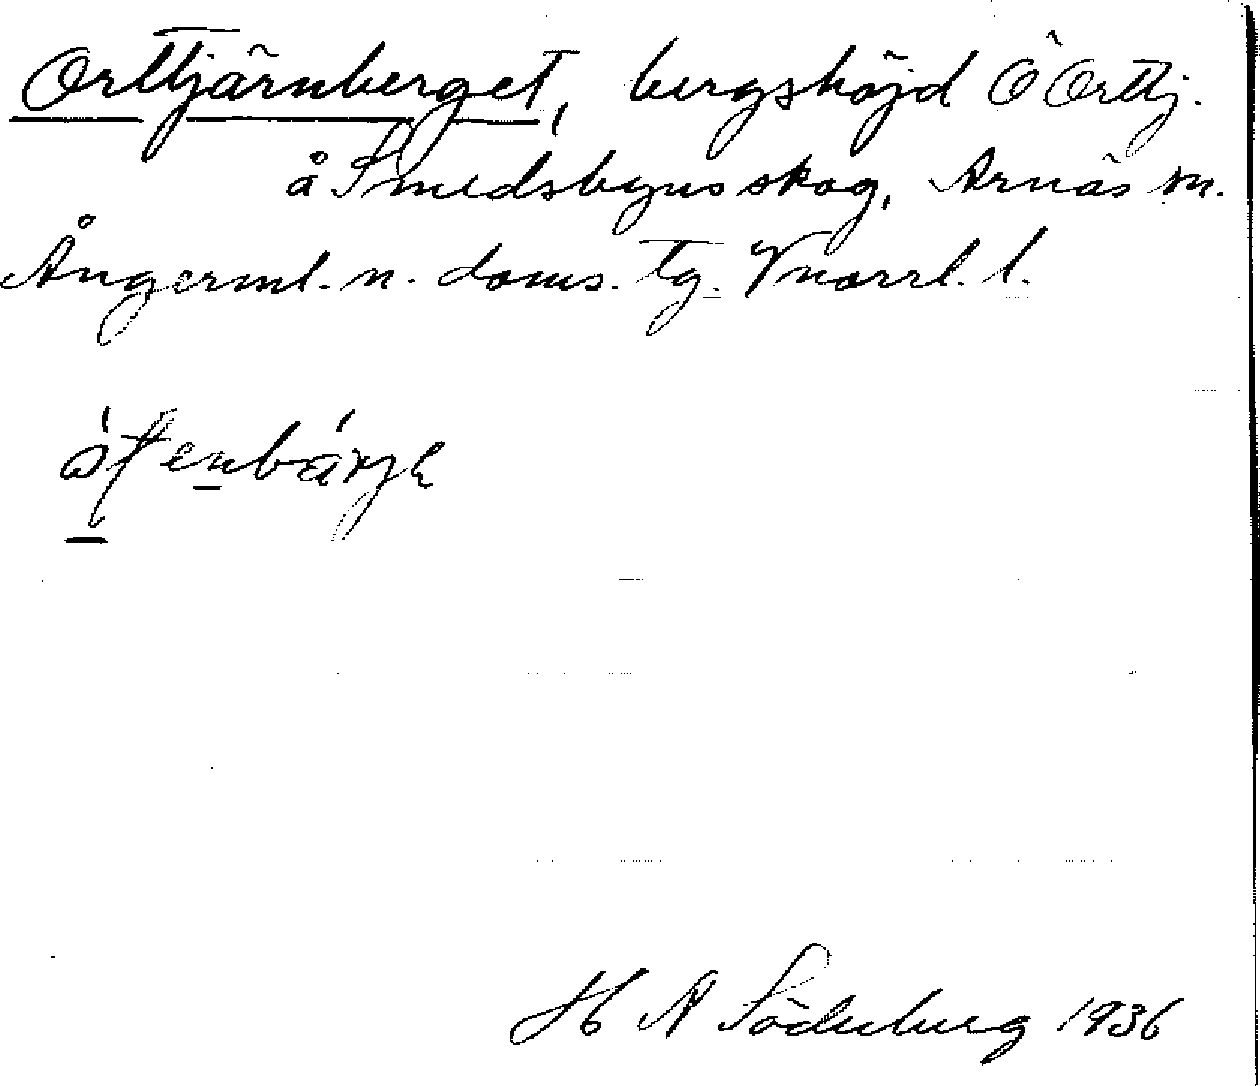 Orttjärnberget, bergshöjd Ö Orttj.
å Smedsbyns skog, Arnäs sn.
Ångerml. n. doms. tg. Vnorrl. l.
H N Söderberg 1936